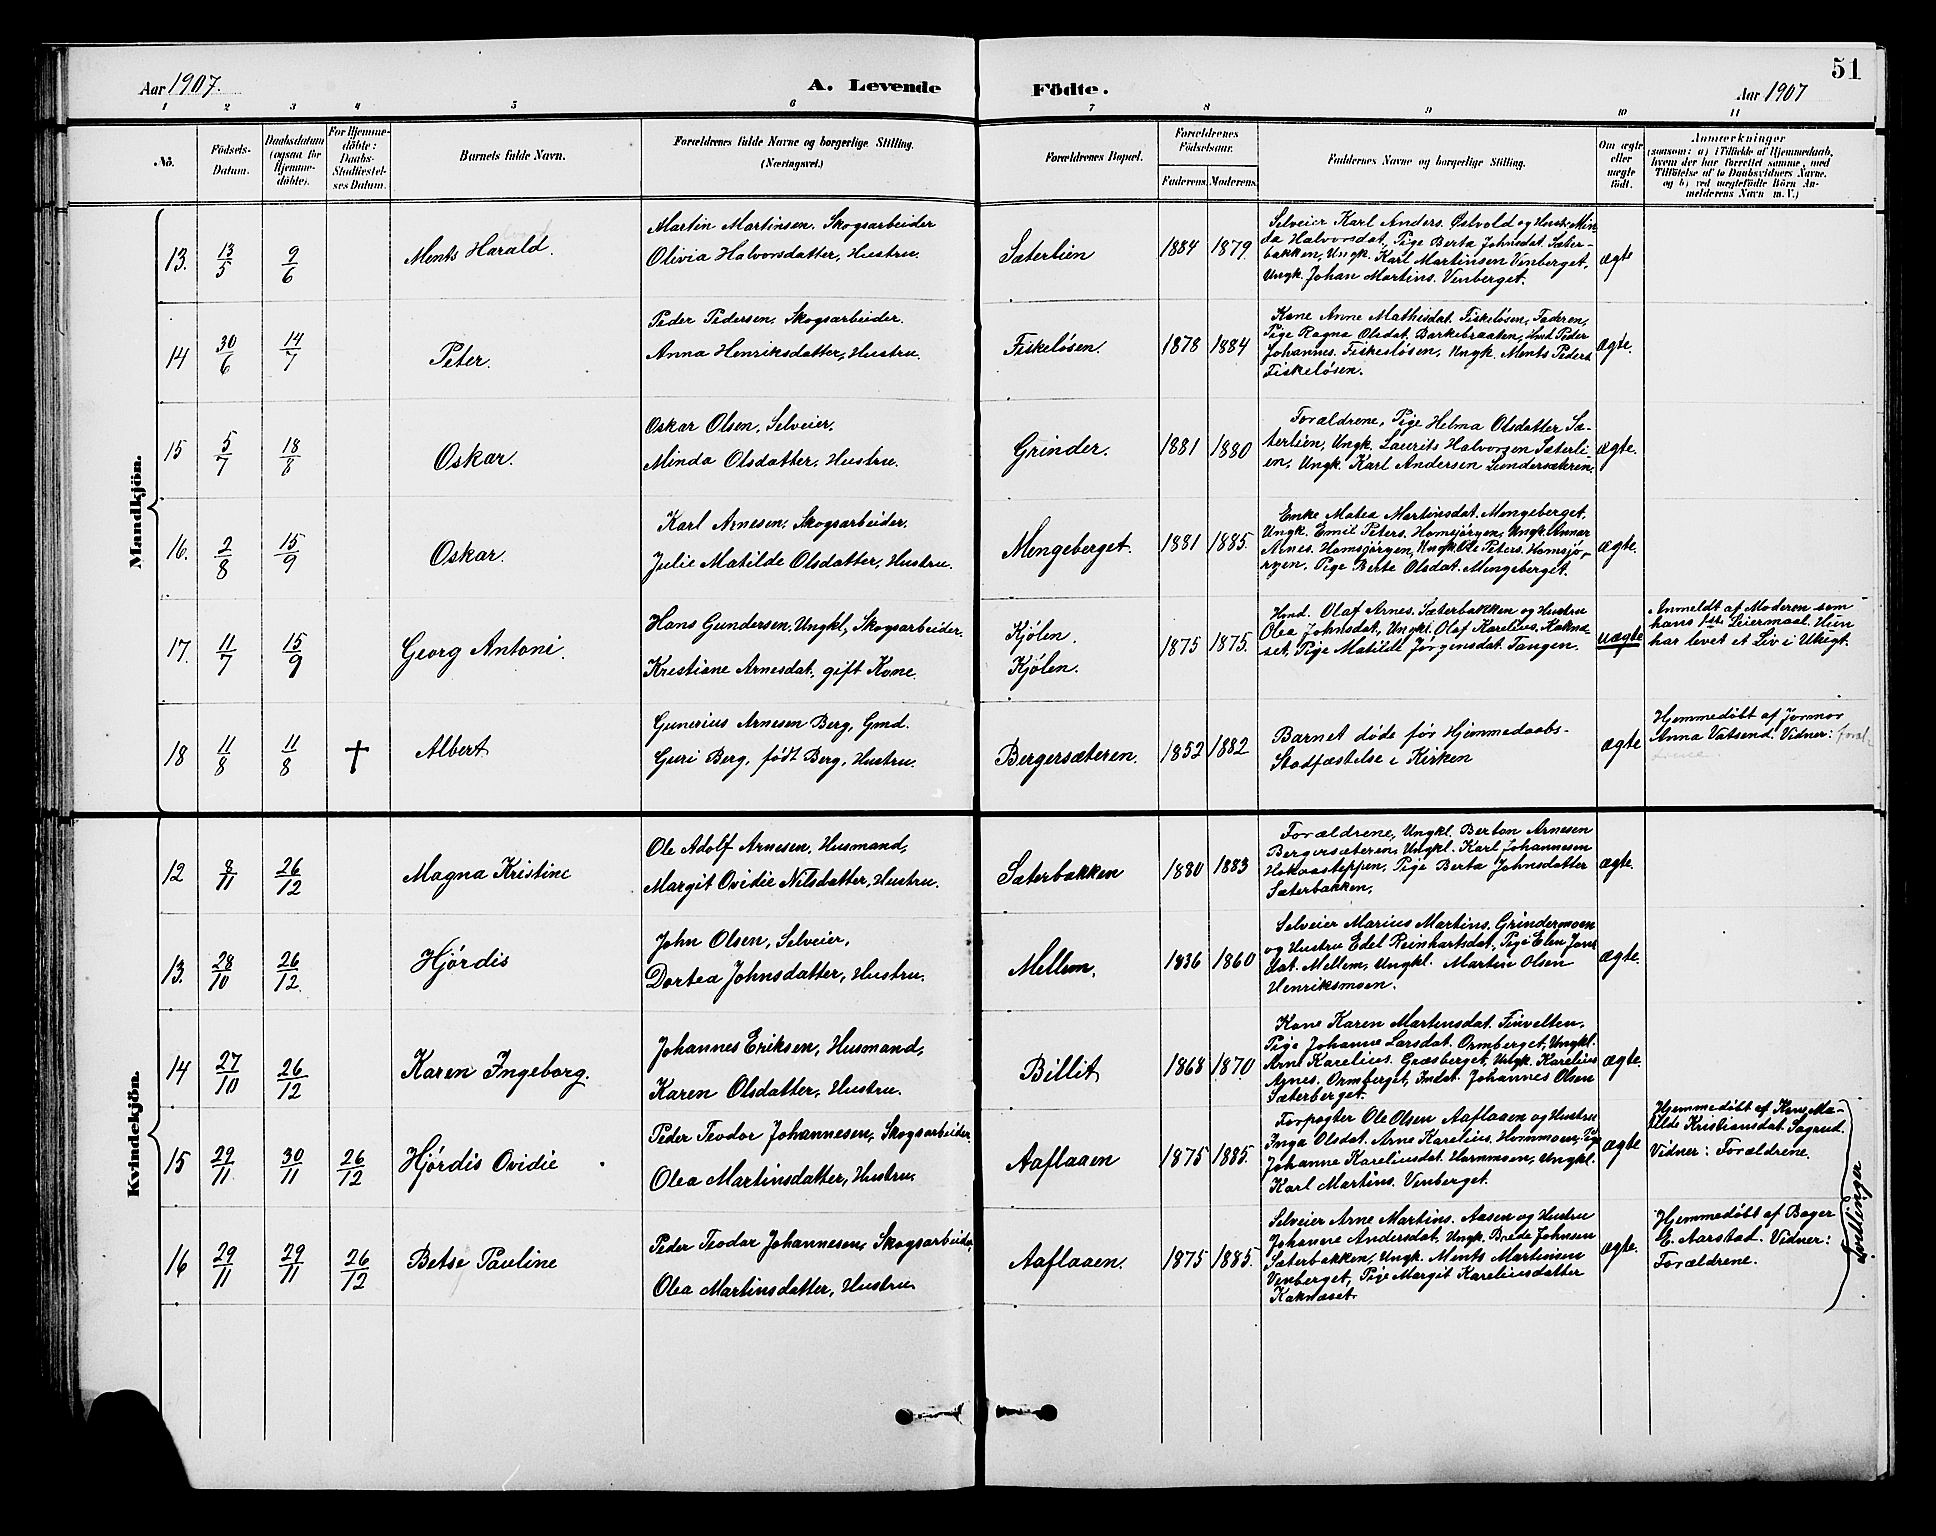 51
Aar 1907.
A. Levende Födte.
Aar 1907
1 2 3 4 5 6 7 8 9 10 11
No.
Födsels-
Datum.
Daabsdatum
(ogsaa for
Hjemme-
döbte).
For Hjemme-
döbte:
Daabs-
Stadfæstel-
ses Datum.
Barnets fulde Navn.
Forældrenes fulde Navne og borgerlige Stilling.
(Næringsvei.)
Forældrenes Bopæl.
Forældrenes
Födselsaar.
Faderens. Moderens.
Faddernes Navne og borgerlige Stilling.
Om ægte
eller
uægte
födt.
Anmærkninger
(saasom: a) i Tilfælde af Hjemmedaab,
hvem der har forrettet samme, med
Tilföielse af to Daabsvidners Navne,
og b) ved uægtefödte Börn An-
melderens Navn m. V.)
Mandkjön.
13. 13/5 9/6
Ments Harald.
Martin Martinsen, Skogsarbeider
Olivia Halvorsdatter, Hustru.
Sæterlien
1884 1879.
Selveier Karl Anders. Østvold og Hustru Min-
da Halvorsdat, Pige Berta Johnsdat. Sæter-
bakken, Ungk. Karl Martinsen Venberget,
Ungk. Johan Martins. Venberget.
ægte
14 30/6 14/7
Peter.
Peder Pedersen, Skogsarbeider.
Anna Henriksdatter, Hustru.
Fiskeløsen.
1878 1884
Kone Anne Mathisdat. Fiskeløsen, Faderen,
Pige Ragna Olsdat. Barkebraaten, Peder
Johannes. Fiskesløsen, Ungk. Ments Peders.
Fiskeløsen.
ægte.
15 5/7 18/8
Oskar.
Oskar Olsen, Selveier.
Minda Olsdatter, Hustru.
Grinder.
1881 1880
Forældrene, Pige Helma Olsdatter Sæ-
terlien, Ungk. Laurits Halvorsen Sæterli-
en, Ungk. Karl Andersen Lundersæteren.
ægte.
16. 2/8 15/9
Oskar.
Karl Arnesen, Skogsarbeider.
Julie Matilde Olsdatter, Hustru.
Mengeberget.
1881 1885.
Enke Matea Martinsdat. Mengeberget,
Ungk. Emil Peters. Homsjøryen, Ungk. Annar
Arnes. Homsjøryen, Ungk. Ole Peters. Homsjø-
ryen. Pige Berte Olsdat. Mengeberget.
ægte.
17. 11/7 15/9
Georg Antoni.
Hans Gundersen, Ungkl, Skogsarbeider.
Kristiane Arnesdat. gift Kone.
Kjølen.
Kjølen.
1875 1875.
Hmd. Olaf Arnes. Sæterbakken og Hustru
Olea Johnsdat, Ungkl. Olaf Karelius. Kaknæ-
set, Pige Matilde Jørgensdat. Tangen.
uægte
Anmeldt af Moderen som
hans 1ste Leiermaal. Hun
har levet et Liv i Utugt.
18 11/8 11/8 †
Albert
Gunerius Arnesen Berg, Gmd.
Guri Berg, født Berg, Hustru.
Bergersæteren.
1852 1882
Barnet døde før Hjemmedaabs-
Stadfæstelse i Kirken
ægte
Hjemmedøbt af Jormor
Anna Vatsend. Vidner: foræl-
drene
Kvindekjön.
12 8/11 26/12
Magna Kristine
Ole Adolf Arnesen, Husmand,
Margit Ovidie Nilsdatter, Hustru.
Sæterbakken
1880 1883
Forældrene, Ungkl. Berton Arnesen
Bergersæteren, Ungkl. Karl Johannesen
Hokaasteppen, Pige Berta Johnsdatter
Sæterbakken,
ægte.
13. 28/10 26/12.
Hjørdis
John Olsen, Selveier,
Dortea Johnsdatter, Hustru.
Mellem,
1836 1860
Selveier Marius Martins. Grindermoen
og Hustru Edel Reinhartsdat, Pige Elen Jons-
dat. Mellem, Ungkl. Martin Olsen
Henriksmoen.
ægte.
14 27/10 26/12
Karen Ingeborg.
Johannes Eriksen, Husmand,
Karen Olsdatter, Hustru.
Billit
1868 1870
Kone Karen Martinsdat. Finvelten,
Pige Johanne Larsdat. Ormberget, Ungkl.
Arne Karelius. Gaasberget, Ungk. Karelius
Arnes. Ormberget, Indst. Johannes Olsen
Sæterberget.
ægte.
15 29/11 30/11 26/12
Hjørdis Ovidie
Peder Teodor Johannesen, Skogsarbeider.
Olea Martinsdatter, Hustru.
Aaflaaen
1875 1885.
Forpagter Ole Olsen Aaflaaen og Hustru
Inga Olsdat. Arne Karelius. Hommoen, Pige
Johanne Kareliusdat. Hommoen, Ungkl.
Karl Martins. Venberget.
ægte
Hjemmedøbt af Kone Ma-
tilde Kristiansdat Sagrud.
Vidner: Forældrene.
16 29/11 29/11 26/12
Betse Pauline
Peder Teodor Johannesen, Skogsarbeider,
Olea Martinsdatter, Hustru.
Aaflaaen.
1875 1885.
Selveier Arne Martins. Aasen og Hustru
Johanne Andersdat, Ungk. Brede Johnsen
Sæterbakken, Ungk. Ments Martinsen
Venberget, Pige Margit Kareliusdatter
Kaknæset.
ægte.
Hjemmedøbt af Bager
E. Aarstad. Vidner:
Forældrene.
Tvillinger